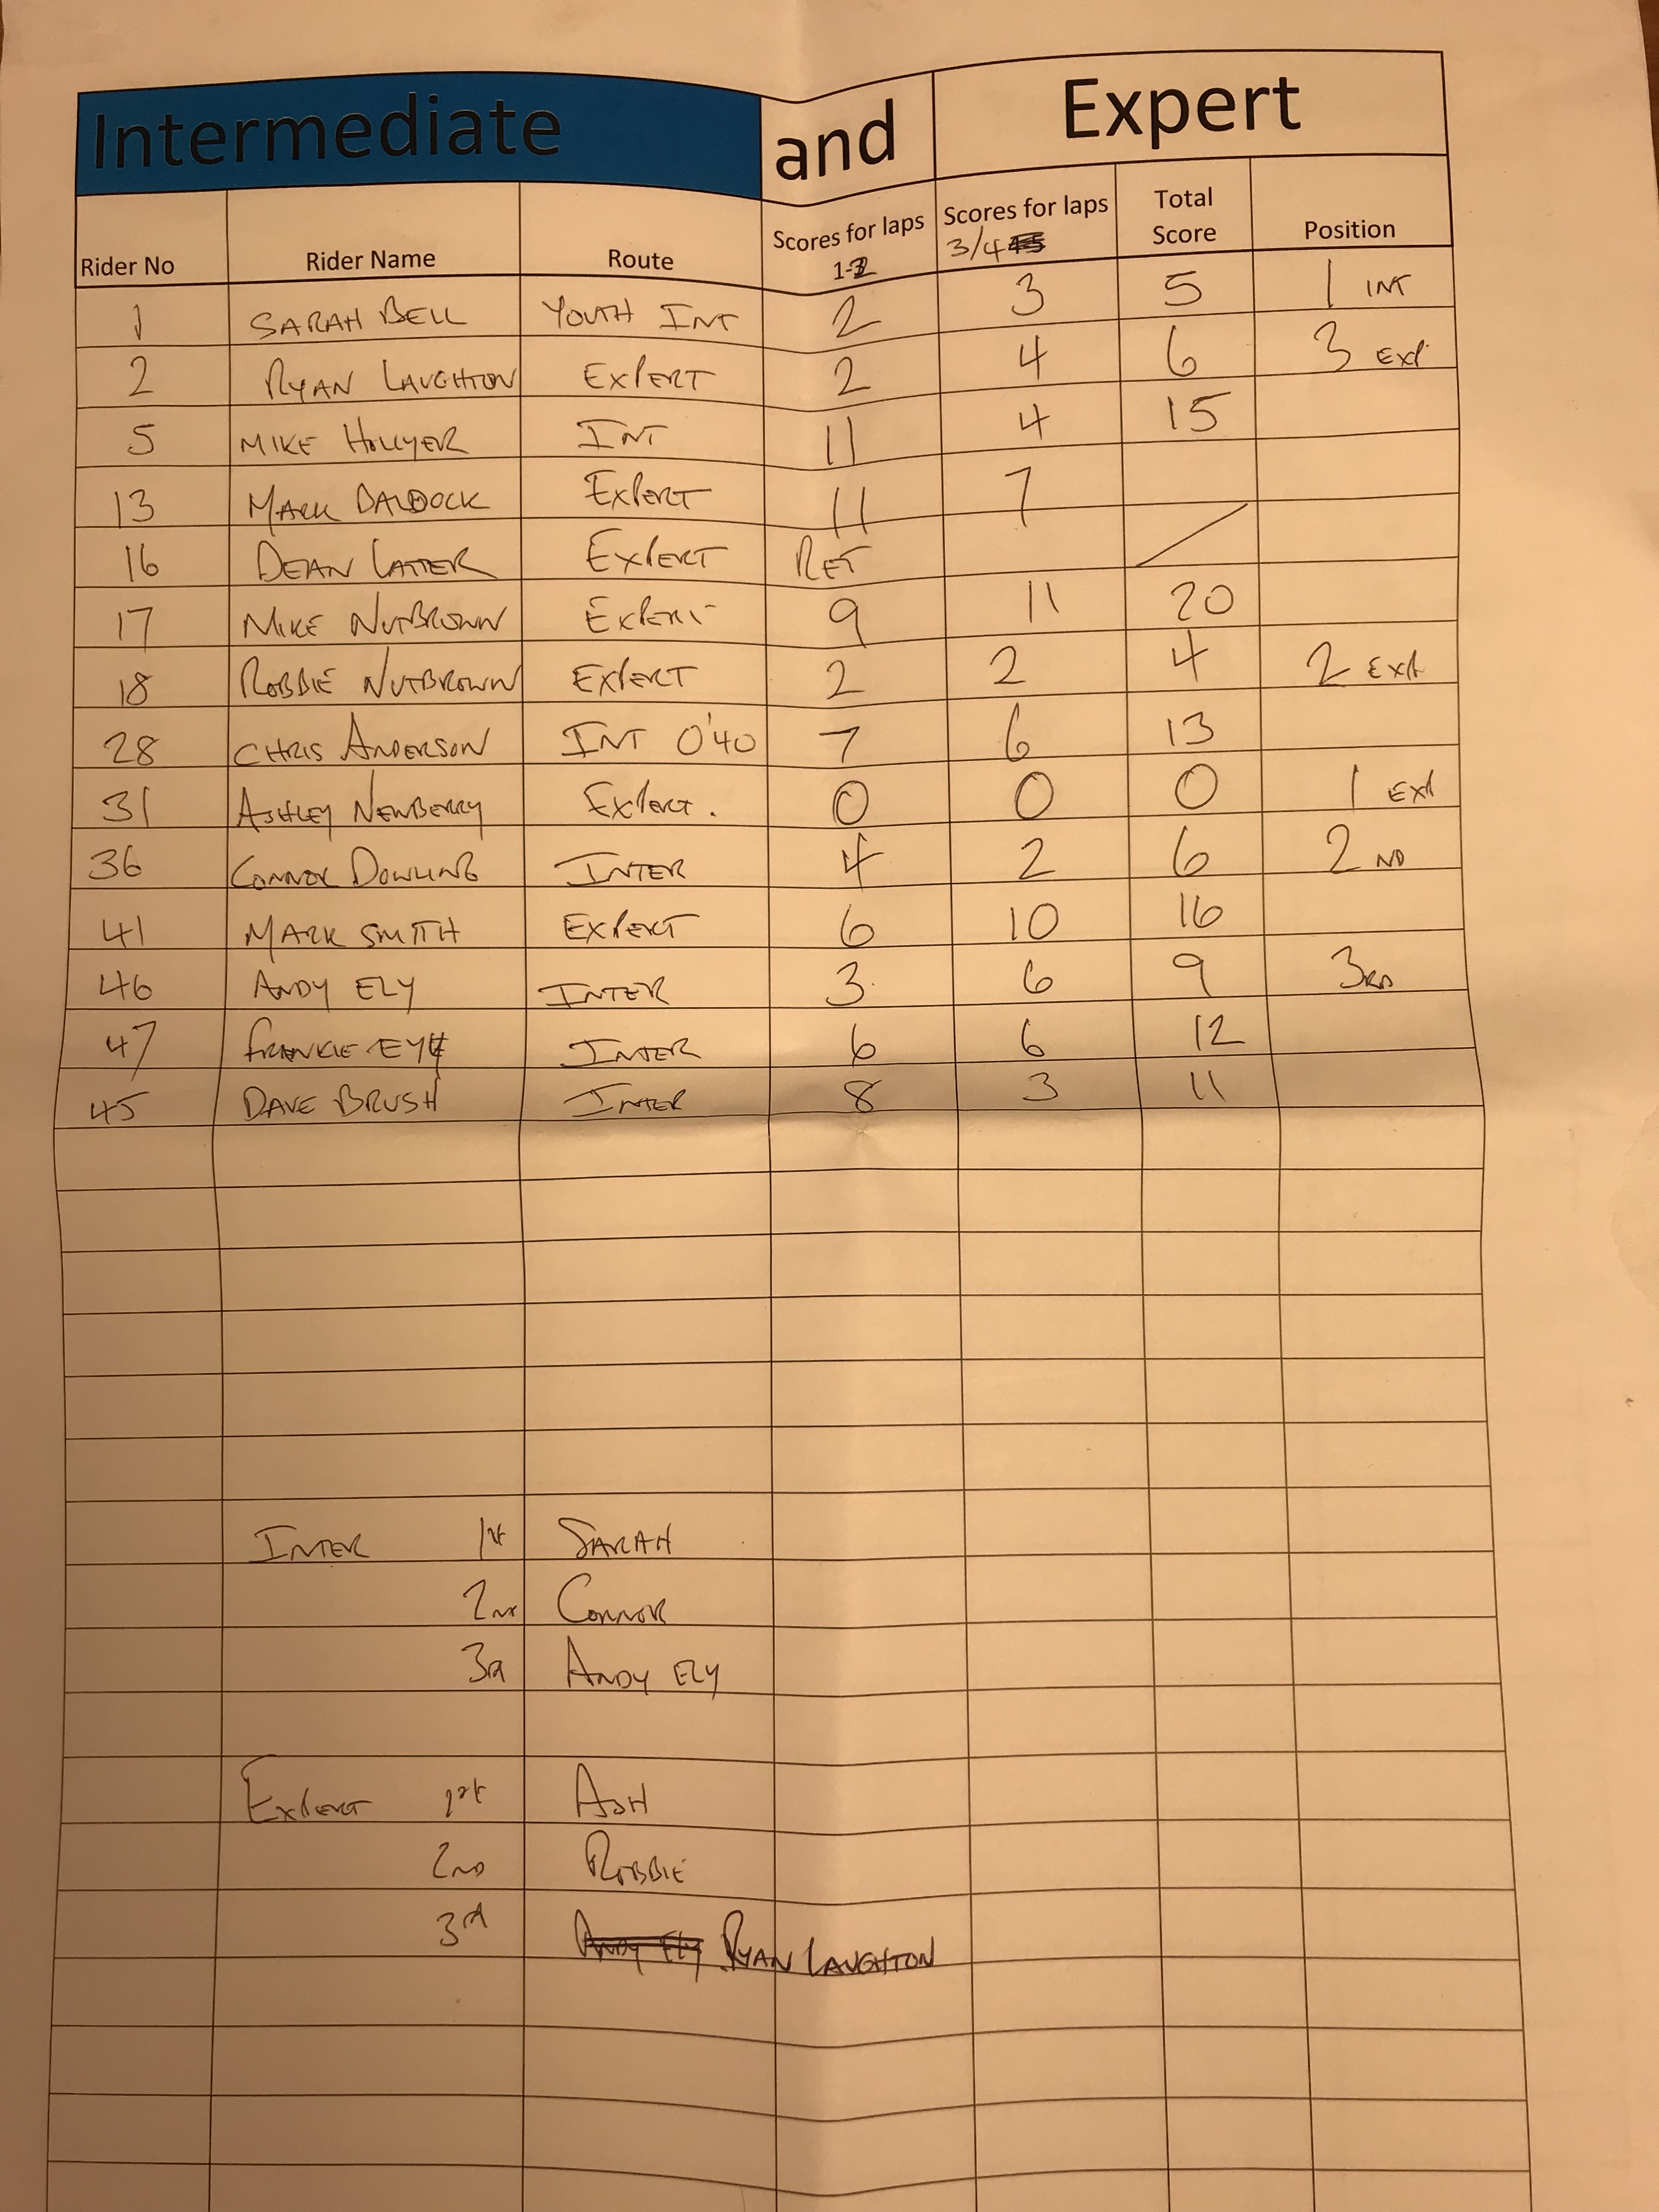 Intermediate and Expert
Rider No Rider Name Route Scores for laps 1-2 Scores for laps 3/4 Total Score Position
1 SARAH BELL YOUTH INT 2 3 5 1 INT
2 RYAN LAUGHTON EXPERT 2 4 6 3 EXP
5 MIKE HOLLYER INT 11 4 15
13 MARK BALDOCK EXPERT 11 7
16 DEAN LATTER EXPERT RET
17 MIKE NUTBROWN EXPERT 9 11 20
18 ROBBIE NUTBROWN EXPERT 2 2 4 2 EXP
28 CHRIS ANDERSON INT O'40 7 6 13
31 ASHLEY NEWBERRY EXPERT. 0 0 0 1 EXP
36 CONNOR DOWLING INTER 4 2 6 2 ND
41 MARK SMITH EXPERT 6 10 16
46 ANDY ELY INTER 3 6 9 3RD
47 FRANKIE INTER 6 6 12
45 DAVE BRUSH INTER 8 3 11
INTER 1st SARAH
2ND CONNOR
3RD ANDY ELY
EXPERT 1st ASH
2ND ROBBIE
3rd ANDY ELY RYAN LAUGHTON